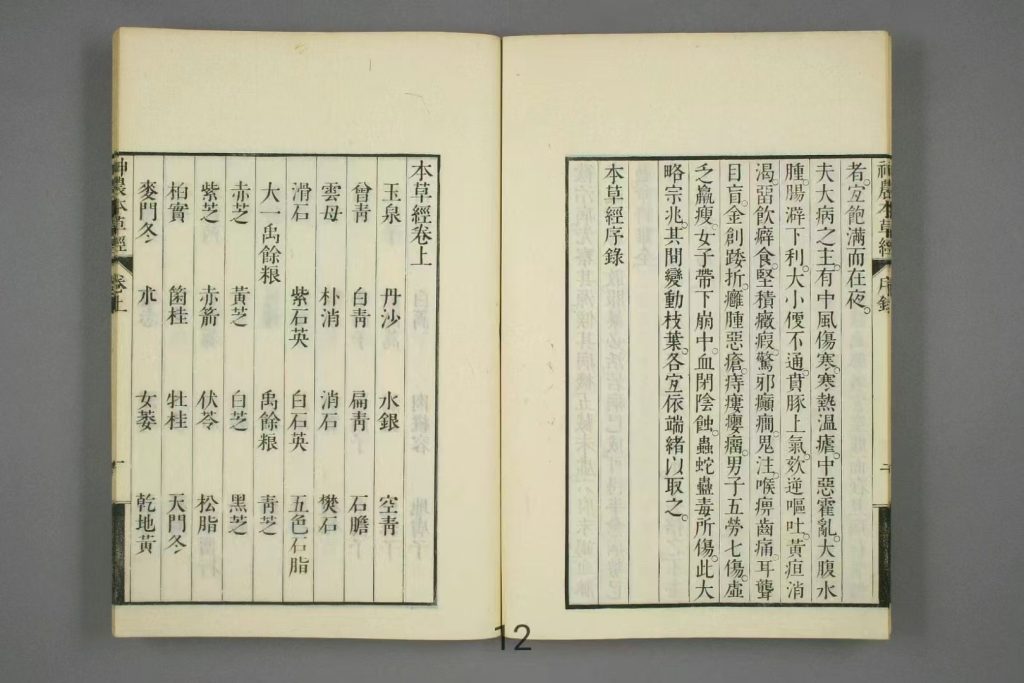 神農本草經 序錄
者。宜飽滿而在夜。
夫大病之主。有中風傷寒。寒熱溫瘧。中惡霍亂。大腹水
腫。腸澼下利。大小便不通。賁豚上氣。欬逆嘔吐。黃疸消
渴。畱飲癖食。堅積癥瘕。驚邪癲癇。鬼注。喉痹齒痛。耳聾
目盲。金創踒折。癰腫惡瘡。痔瘻癭瘤。男子五勞七傷。虛
乏羸瘦。女子帶下崩中。血閉陰蝕。蟲蛇蠱毒所傷。此大
略宗兆。其間變動枝葉。各宜依端緒以取之。
本草經序錄
本草經卷上
玉泉 丹沙 水銀 空青
曾青 白青 扁青 石膽
雲母 朴消 消石 樊石
滑石 紫石英 白石英 五色石脂
大一禹餘粮 禹餘粮 青芝
赤芝 黃芝 白芝 黑芝
紫芝 赤箭 伏苓 松脂
柏實 箘桂 牡桂 天門冬
麥門冬 朮 女萎 乾地黃
神農本草經 卷上 一
12